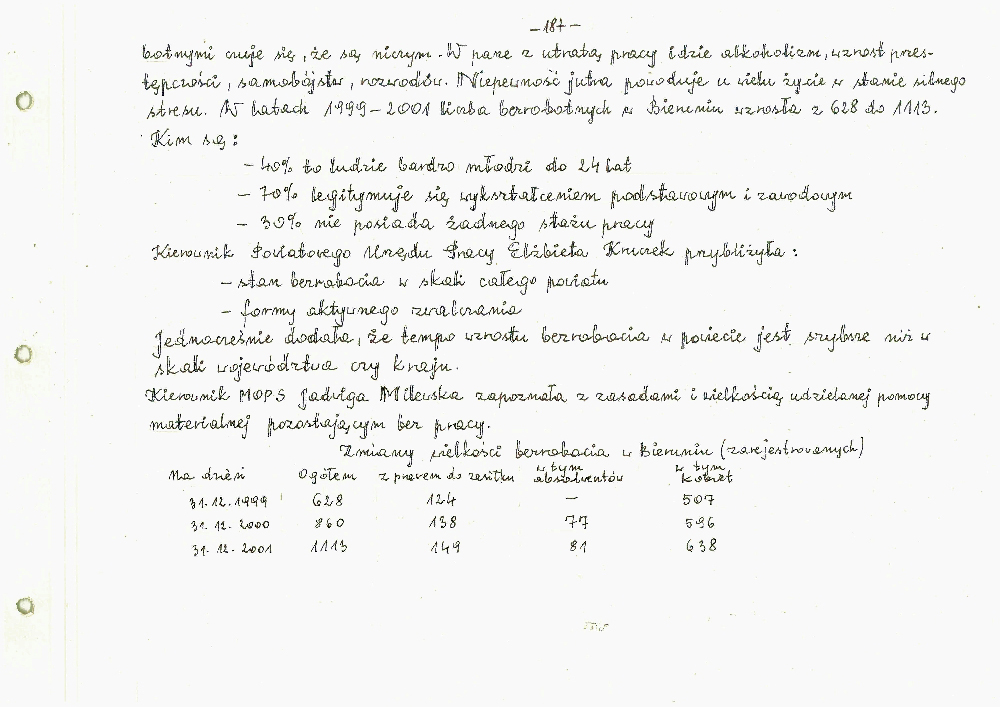 – 187 –
botnymi czuje się, że są niczym. W parze z utratą pracy idzie alkoholizm, wzrost przes-
tępczości, samobójstw, rozwodów. Niepewność jutra powoduje u wielu życie w stanie silnego
stresu. W latach 1999–2001 liczba bezrobotnych w Bieruniu wzrosła z 628 do 1113.
Kim są:
– 40% to ludzie bardzo młodzi do 24 lat
– 70% legitymuje się wykształceniem podstawowym i zawodowym
– 30% nie posiada żadnego stażu pracy
Kierownik Powiatowego Urzędu Pracy Elżbieta Kruczek przybliżyła:
– stan bezrobocia w skali całego powiatu
– formy aktywnego zwalczania
Jednocześnie dodała, że tempo wzrostu bezrobocia w powiecie jest szybsze niż w
skali województwa czy kraju.
Kierownik MOPS Jadwiga Milewska zapoznała z zasadami i wielkością udzielanej pomocy
materialnej pozostającym bez pracy.
Zmiany wielkości bezrobocia w Bieruniu (zarejestrowanych)
Na dzień Ogółem z prawem do zasiłku w tym absolwentów w tym kobiet
31.12.1999 628 124 – 507
31.12.2000 860 138 77 596
31.12.2001 1113 149 81 638